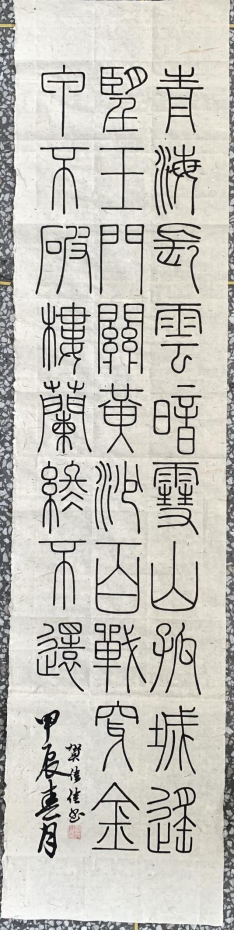 青海長雲暗雪山孤城遙
望玉門關黃沙百戰穿金
甲不破樓蘭終不還
甲辰春月
佳佳书